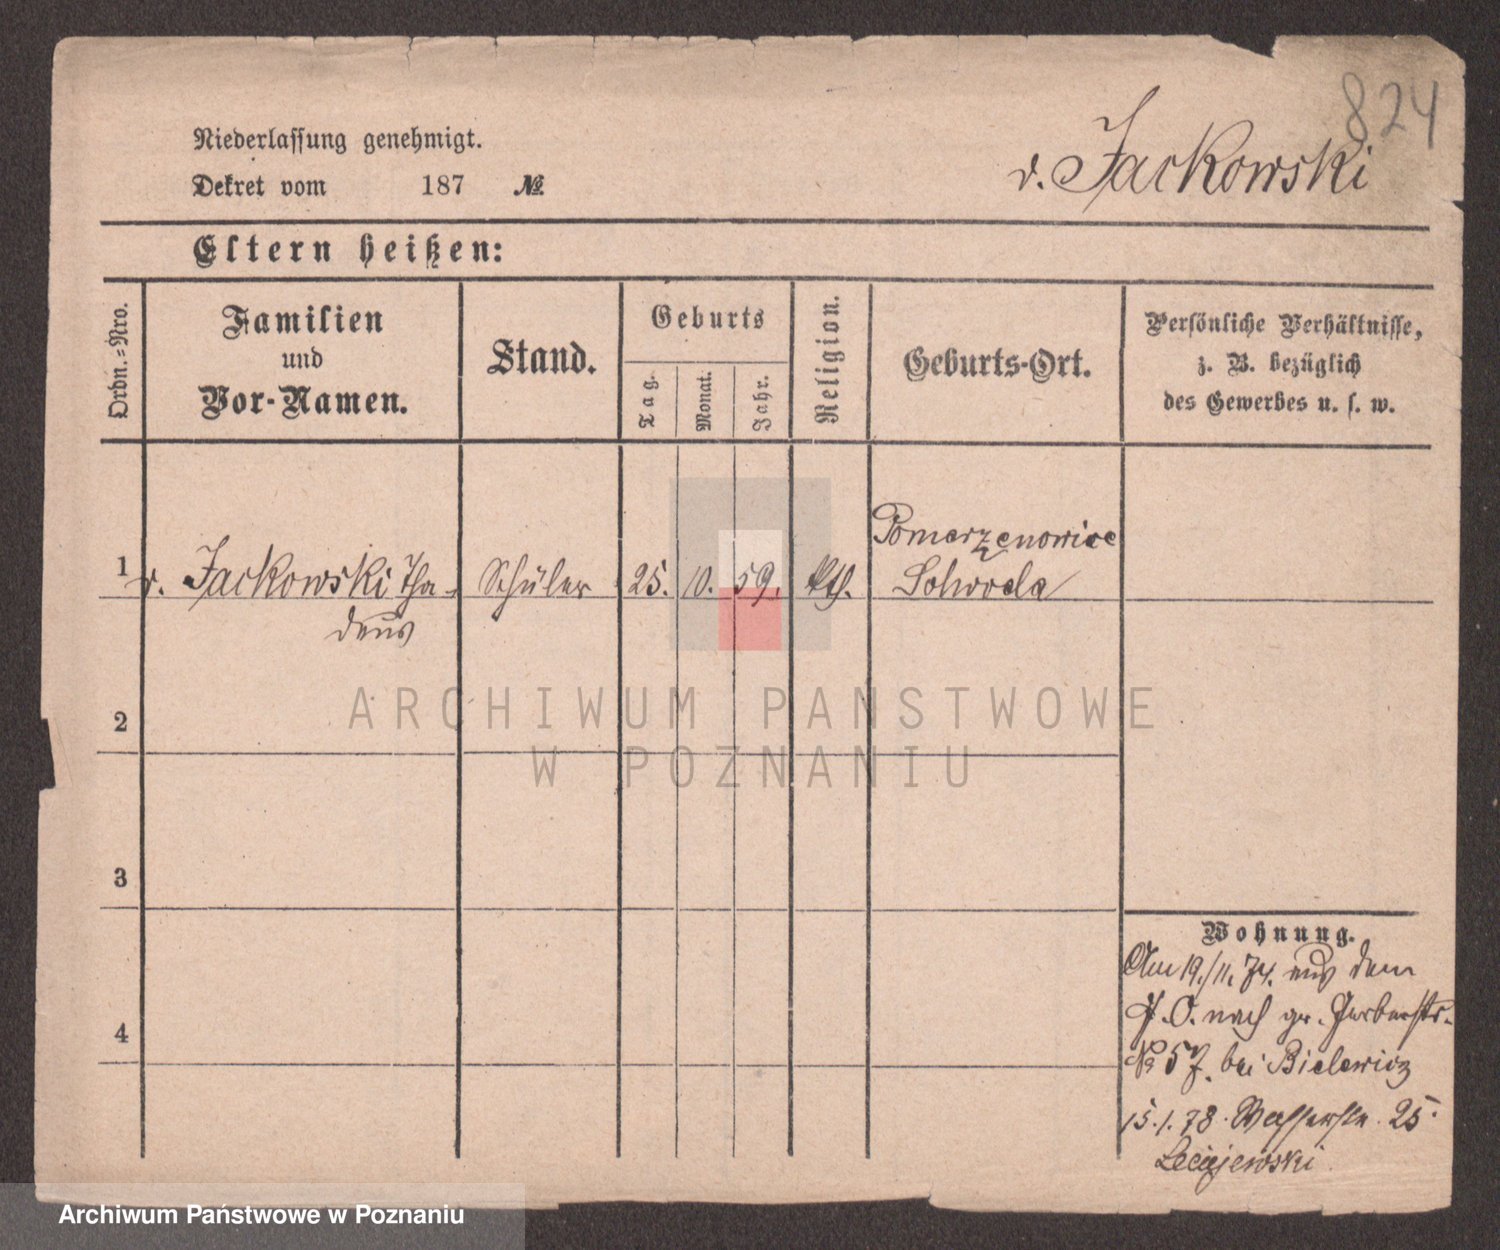 824
v. Jackowski
Niederlassung genehmigt.
Dekret vom 187 №
Eltern heißen:
Ordn.=Nro.
Familien
und
Vor-Namen.
Stand.
Geburts
Tag.
Monat.
Jahr.
Religion.
Geburts-Ort.
Persönliche Verhältnisse,
z. B. bezüglich
des Gewerbes u. s. w.
Pomarzanowice
1 v. Jackowski Tha- Schüler 25. 10. 59. kth.
deus
2
3
4
Wohnung.
Am 19./11. 74. aus dem
P. O. nach gr. Gerberstr.
№ 57. bei Bielewicz
15.1.78. Wasserstr. 25
ARCHIWUM PAŃSTWOWE
W POZNANIU
Archiwum Państwowe w Poznaniu